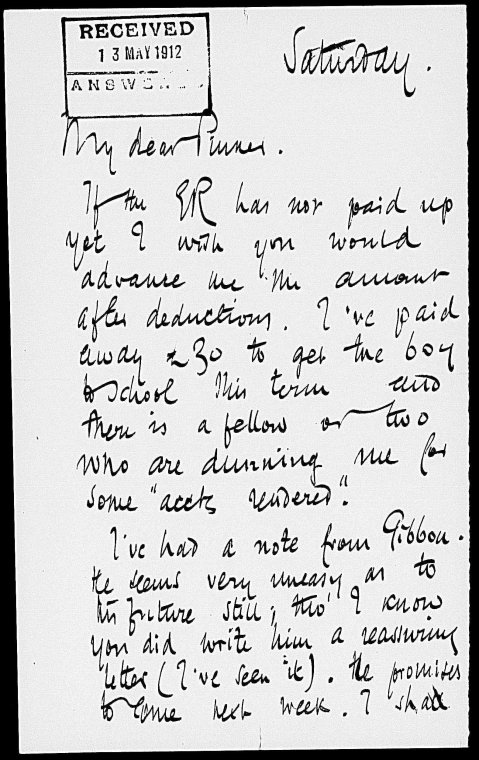 RECEIVED
13 MAY 1912
ANSWE
Saturday.
My dear Pinker.
If the ER has not paid up
yet I wish you would
advance me the amount
after deductions. I've paid
away £30 to get the boy
to school this term and
there is a fellow or two
who are dunning me for
some "accts rendered".
I've had a note from Gibbon.
He seems very uneasy as to
his future still; tho' I know
you did write him a reassuring
letter (I've seen it). He promises
to come next week. I shall